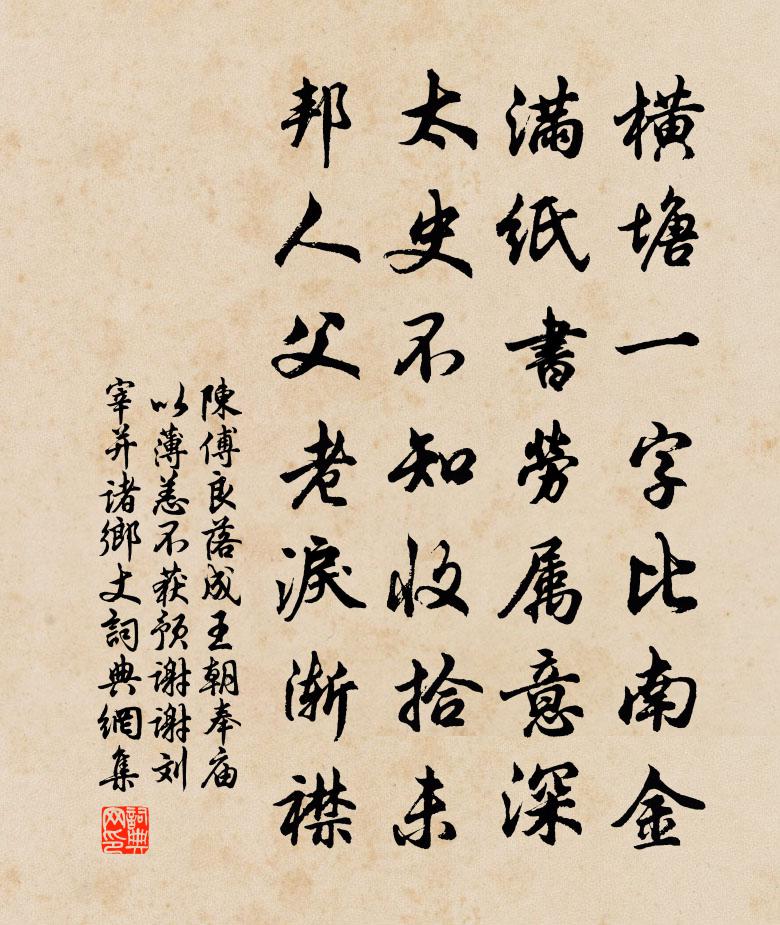 橫塘一字比南金
滿紙書勞属意深
太史不知收拾未
邦人父老淚渐襟
陳傅良落成王朝奉庙
以薄恙不获预谢谢刘
宰并诸鄉丈詞典網集
詞典网印